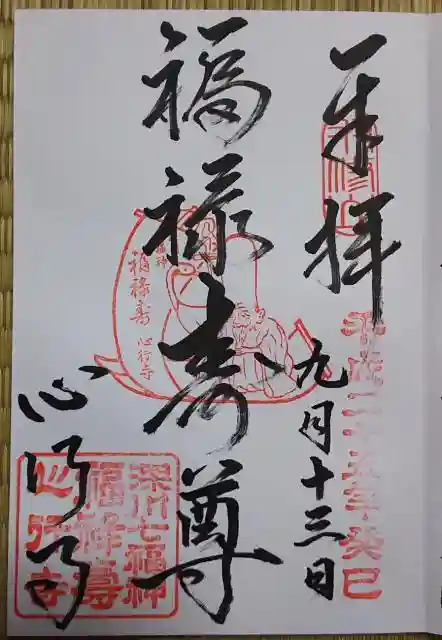 奉拝
平成二十五年癸巳
九月十三日
福禄寿尊
福禄寿
心行寺
心行寺
深川七福神
福禄寿
心行寺